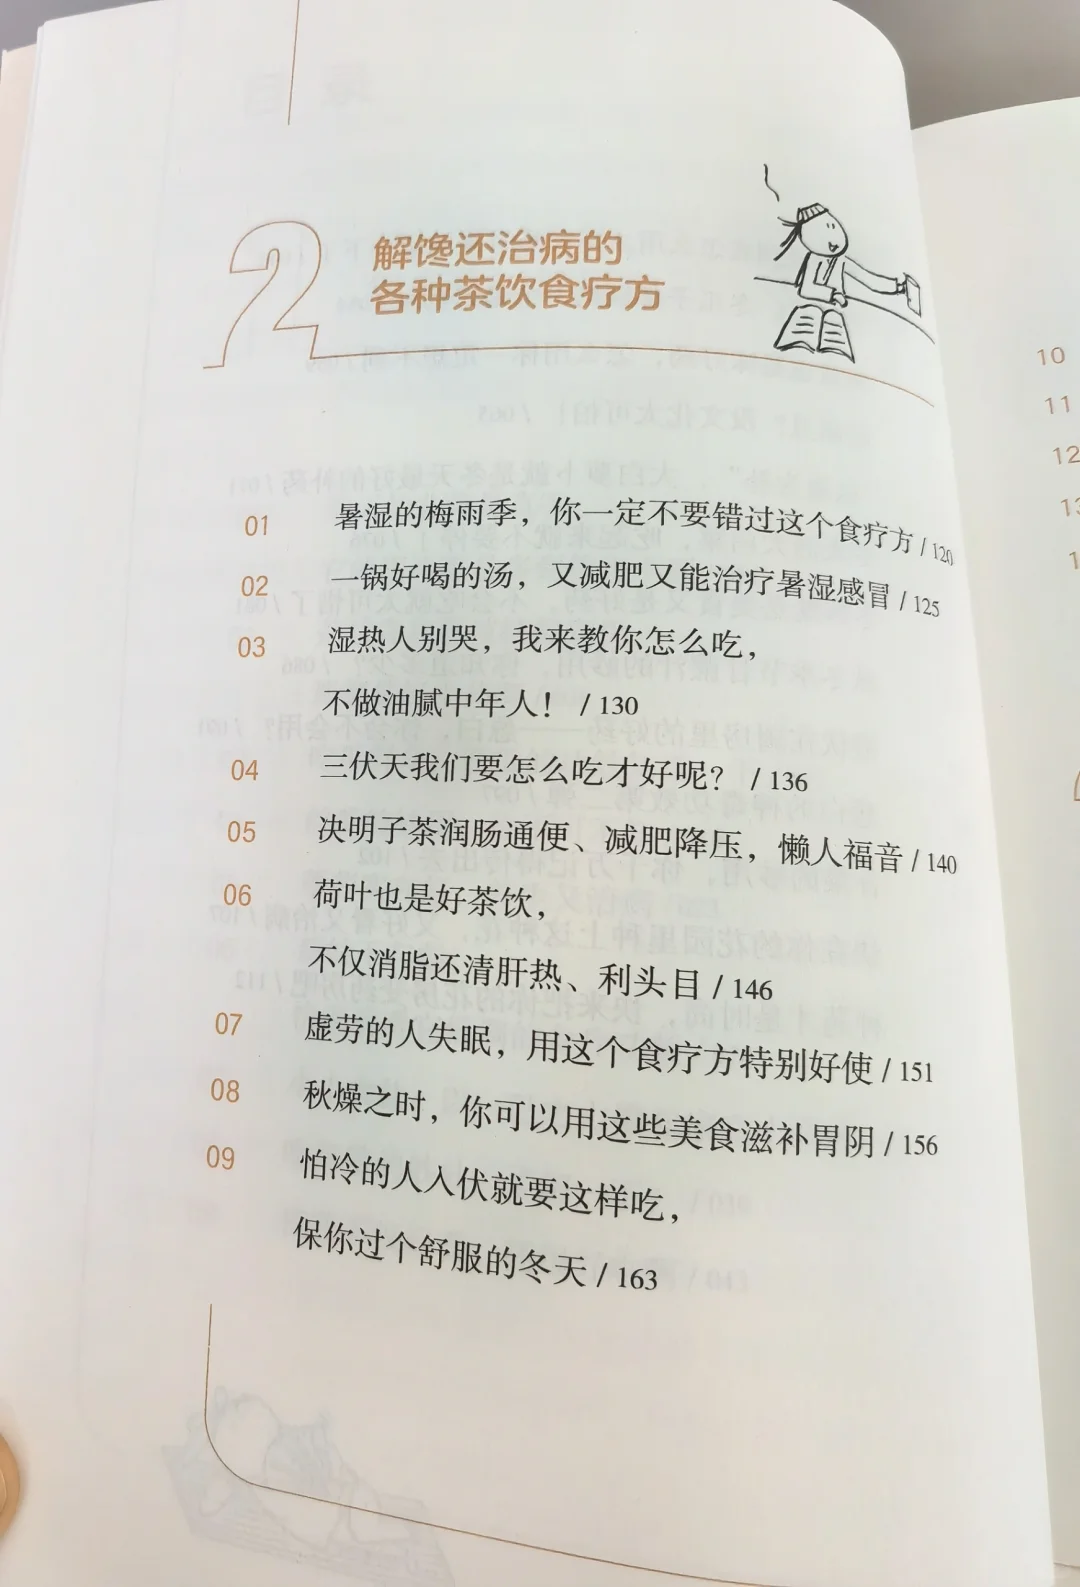 2
解馋还治病的
各种茶饮食疗方
01 暑湿的梅雨季，你一定不要错过这个食疗方 / 120
02 一锅好喝的汤，又减肥又能治疗暑湿感冒 / 125
03 湿热人别哭，我来教你怎么吃，
不做油腻中年人！ / 130
04 三伏天我们要怎么吃才好呢？ / 136
05 决明子茶润肠通便、减肥降压，懒人福音 / 140
06 荷叶也是好茶饮，
不仅消脂还清肝热、利头目 / 146
07 虚劳的人失眠，用这个食疗方特别好使 / 151
08 秋燥之时，你可以用这些美食滋补胃阴 / 156
09 怕冷的人入伏就要这样吃，
保你过个舒服的冬天 / 163
10
11
12